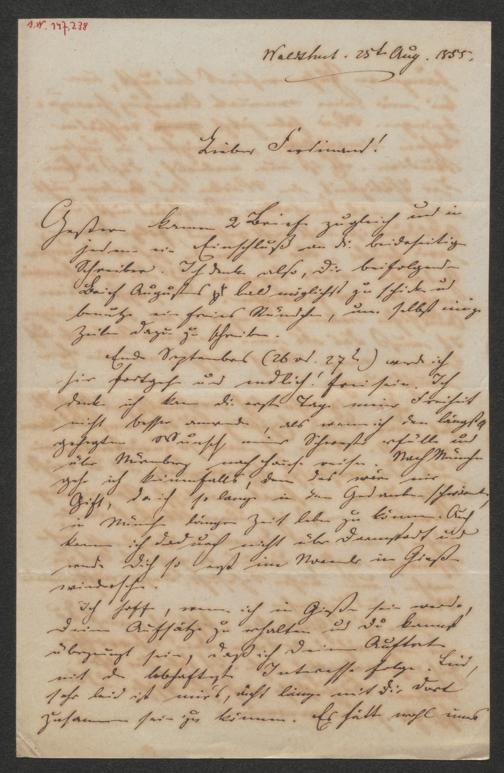 I.N. 147,238
Waldshut. 25t Aug. 1855.
Lieber Ferdinand!
Gestern kamen 2 Briefe zugleich und in
jedem ein Einschluß an die beiderseitigen
Schreiber. Ich denke also, Dir beifolgenden
Brief Augustes bald möglichst zu schicken und
benutze ein freies Stündchen, um selbst einige
Zeilen dazu zu schreiben.
Ende Septembers (26 od. 27t.) werde ich
hier fortgehen und endlich! frei sein. Ich
denke ich kann die ersten Tage meiner Freiheit
nicht besser anwenden, als wenn ich den längst
gehegten Wunsch meiner Schwester erfülle und
über Nürnberg nach Hause reise. Nach München
gehe ich keinenfalls, denn das wäre mir
Gift, da ich so lange in dem Gedanken
in München längere Zeit leben zu können. Auch
kann ich dadurch nicht über Darmstadt und
werde Dich so erst im Novemb. in Gießen
wiedersehen.
Ich hoffe, wenn ich in Gießen sein werde,
Deine Aufsätze zu erhalten und Du kannst
überzeugt sein, daß ich Deinem Auftreten
mit dem lebhaftesten Interesse folge. Leid,
sehr leid ist mirs, nicht länger mit Dir dort
zusammen sein zu können. Es hätte wohl uns